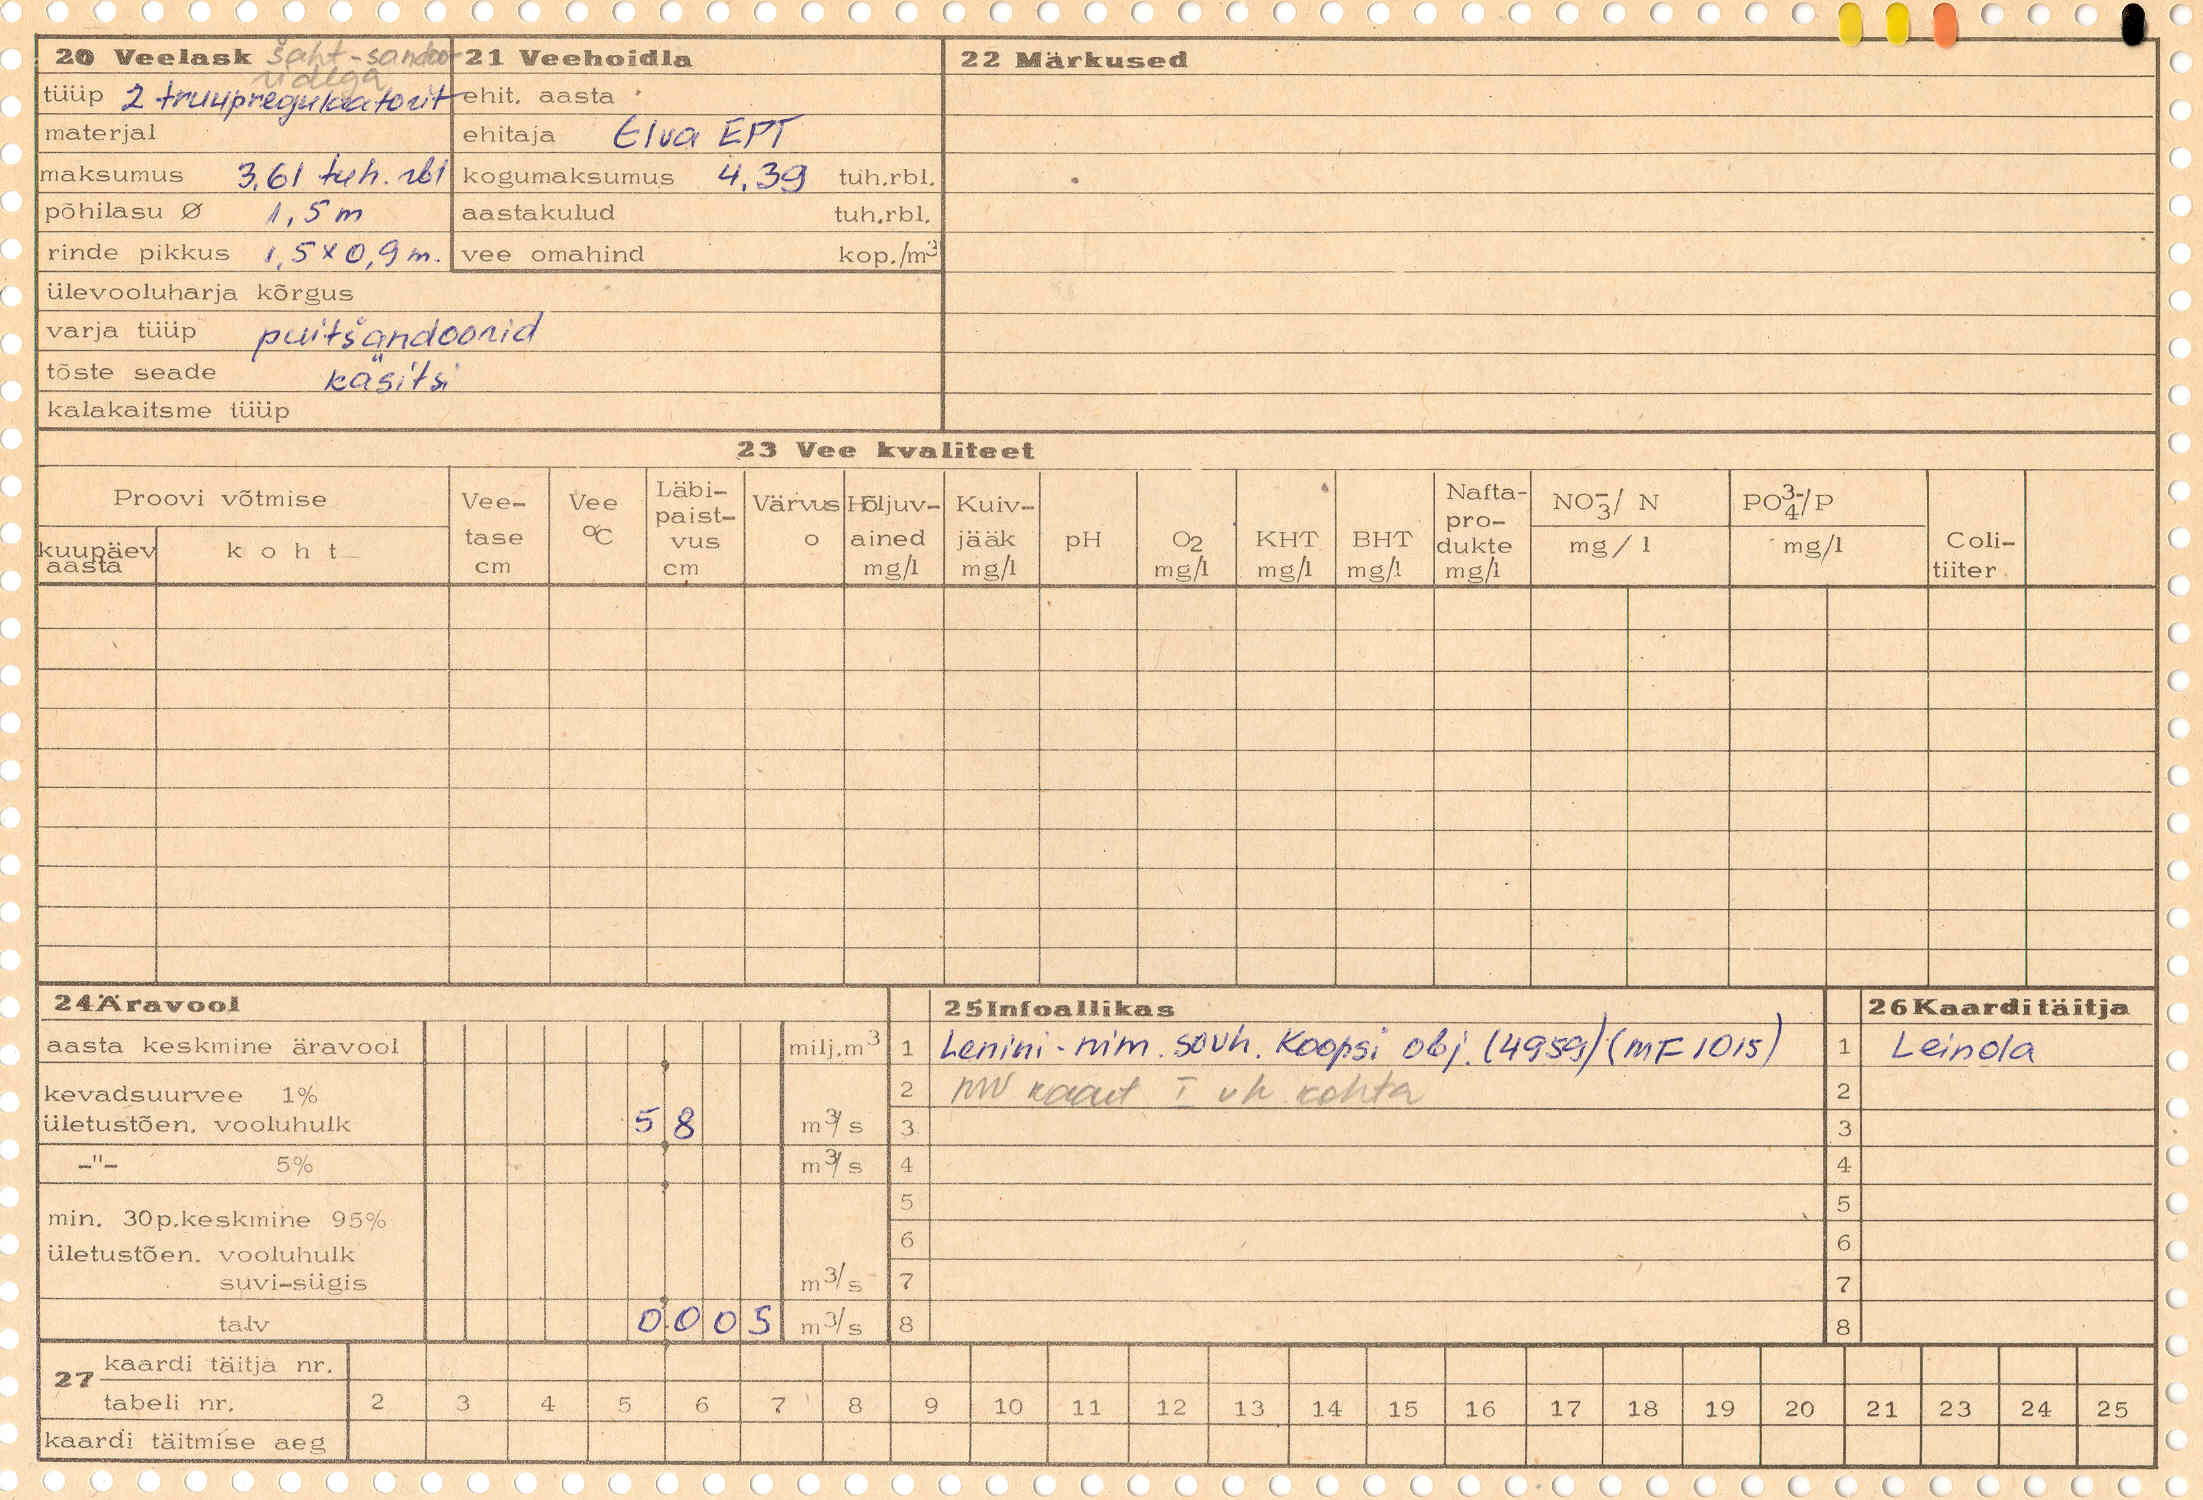 20 Veelask šaht-šandoo-
ridega
tüüp 2 truupregulaatorit
materjal
maksumus 3,61 tuh. rbl
põhilasu Ø 1,5 m
rinde pikkus 1,5 x 0,9 m.
ülevooluharja kõrgus
varja tüüp puitšandoorid
tõste seade käsitsi
kalakaitsme tüüp
21 Veehoidla
ehit. aasta
ehitaja Elva EPT
kogumaksumus 4,39 tuh.rbl.
aastakulud tuh.rbl.
vee omahind kop./m3
22 Märkused
23 Vee kvaliteet
Proovi võtmise
kuupäev aasta
koht
Vee-tase cm
Vee °C
Läbi-paist-vus cm
Värvus o
Hõljuv-ained mg/l
Kuiv-jääk mg/l
pH
O2 mg/l
KHT mg/l
BHT mg/l
Nafta-pro-dukte mg/l
NO3-/ N mg/l
PO4 3-/P mg/l
Coli-tiiter
24 Äravool
aasta keskmine äravool milj.m3
kevadsuurvee 1%
ületustõen. vooluhulk 5 8 m3/s
-"- 5% m3/s
min. 30p.keskmine 95%
ületustõen. vooluhulk
suvi-sügis m3/s
talv 0.005 m3/s
25 Infoallikas
1 Lenini-nim. sovh. Koopsi obj. (4959) (MF 1015)
2 NW kaart I vh kohta
3
4
5
6
7
8
26 Kaarditäitja
1 Leinola
2
3
4
5
6
7
8
27 kaardi täitja nr.
tabeli nr. 2 3 4 5 6 7 8 9 10 11 12 13 14 15 16 17 18 19 20 21 23 24 25
kaardi täitmise aeg